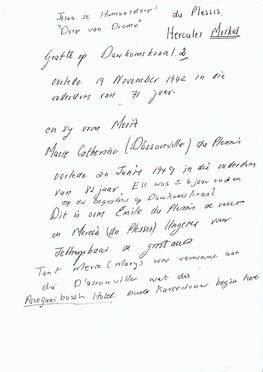 du Plessis
"Dorp van Drome" Hercules Merkel
Grafte op Dawkomskraal.2
oorlede 19 November 1942 in die
ouderdom van 71 jaar.
en sy vrou Merié
Marie Catherine (D'Assonville) du Plessis
oorlede 20 Junie 1949 in die ouderdom
van 82 jaar. Ek was ± 6 jaar oud en
op die begrafnis op Dawkomskraal
Dit is oom Emile du Plessis se
en Mercia (du Plessis) Ungerer van
Jeffreysbaai se grootouers
Tant Merie (Mary) was verwant aan
die D'assonville wat die
Hotel buite Kareedouw begin het